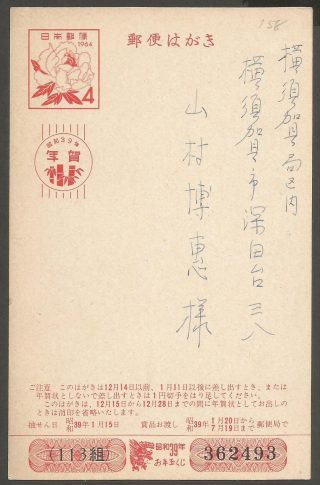 日本郵便
1964
4
郵便はがき
158
昭和39年
年賀
横須加局区内
横須加市深田台三八
山村博惠様
ご注意 このはがきは12月14日以前、1月11日以後に差し出すとき、または
年賀状としないで差し出すときは1円切手をはり足してください。
このはがきは、12月15日から12月28日までの間に年賀状としてお出しの
ときは消印を省略いたします。
抽せん日 昭和39年1月15日 賞品お渡し 昭和39年1月20日から7月19日まで郵便局で
(113組)
昭和39年
お年玉くじ
362493